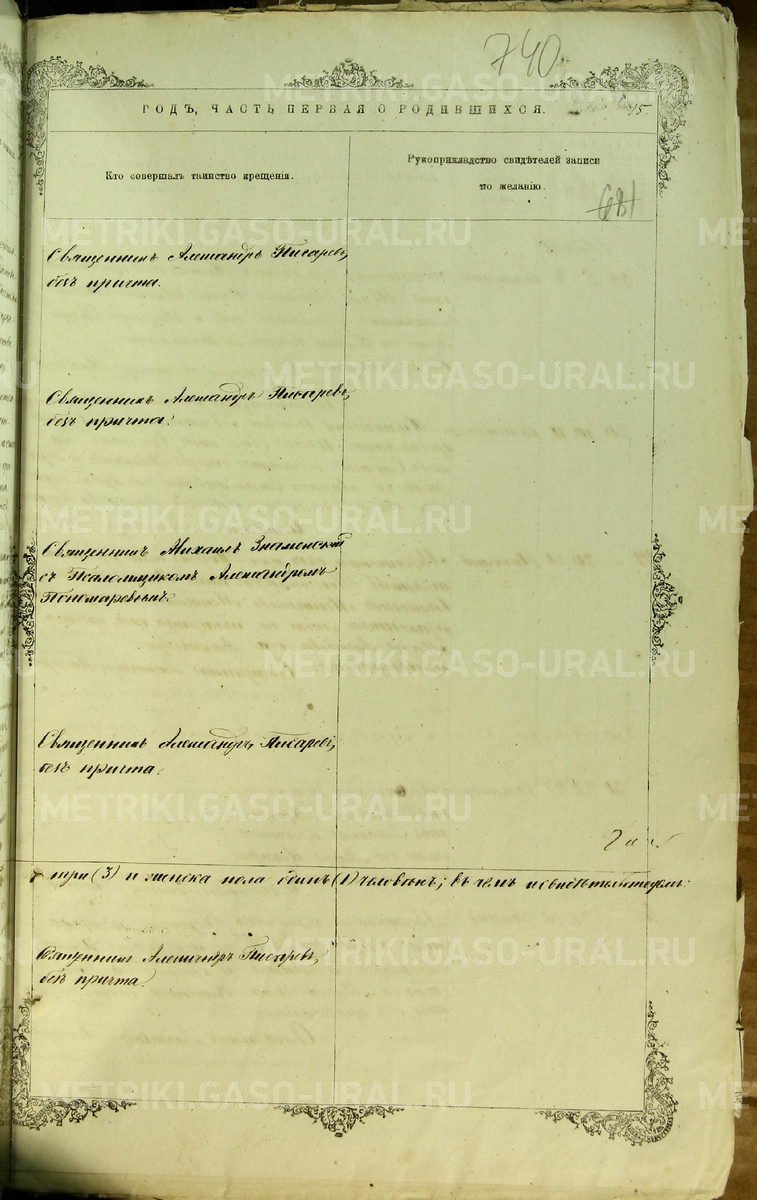 740
ГОДЪ, ЧАСТЬ ПЕРВАЯ О РОДИВШИХСЯ.
Кто совершалъ таинство крещенія.
Рукоприкладство свидѣтелей записи
по желанію.
681
Священникъ Александръ Писаревъ,
безъ причта.
Священникъ Александръ Писаревъ,
безъ причта.
Священникъ Михаилъ Знаменскій
съ Псаломщикомъ Александромъ
Пономаревымъ.
Священникъ Александръ Писаревъ,
безъ причта.
три (3) и женска пола одинъ (1) человѣкъ; въ чемъ и свидѣтельствуемъ:
Священникъ Александръ Писаревъ,
безъ причта.
METRIKI.GASO-URAL.RU